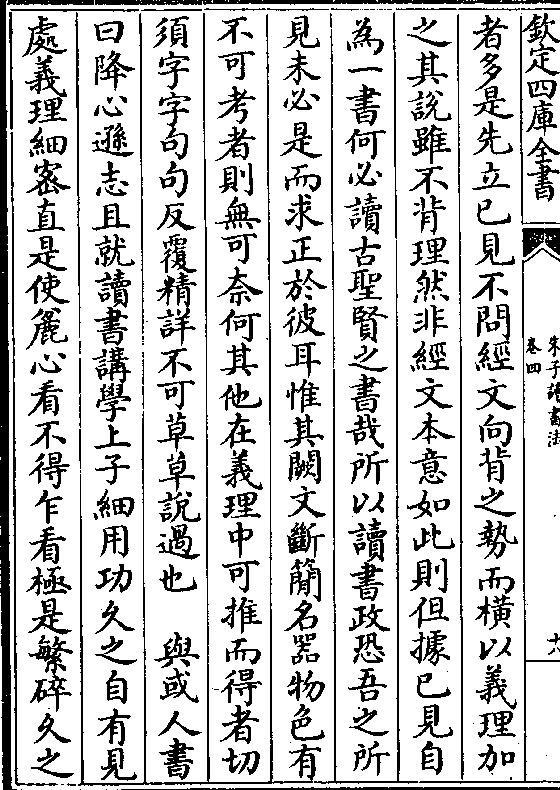 欽定四庫全書
朱子讀書法
卷四
十八
者多是先立已見不問經文向背之勢而橫以義理加
之其說雖不背理然非經文本意如此則但據已見自
為一書何必讀古聖賢之書哉所以讀書政恐吾之所
見未必是而求正於彼耳惟其闕文斷簡名器物色有
不可考者則無可奈何其他在義理中可推而得者切
須字字句句反覆精詳不可草草說過也　與或人書
曰降心遜志且就讀書講學上子細用功久之自有見
處義理細宻直是使麄心看不得乍看極是繁碎久之